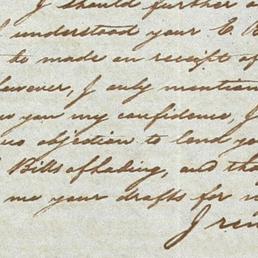 I should further
understood your E. B
to made on receipt of
however, I only mention
you my confidence, I
no objection to lend you
Bills of Lading, and tha
me your drafts for
I rem